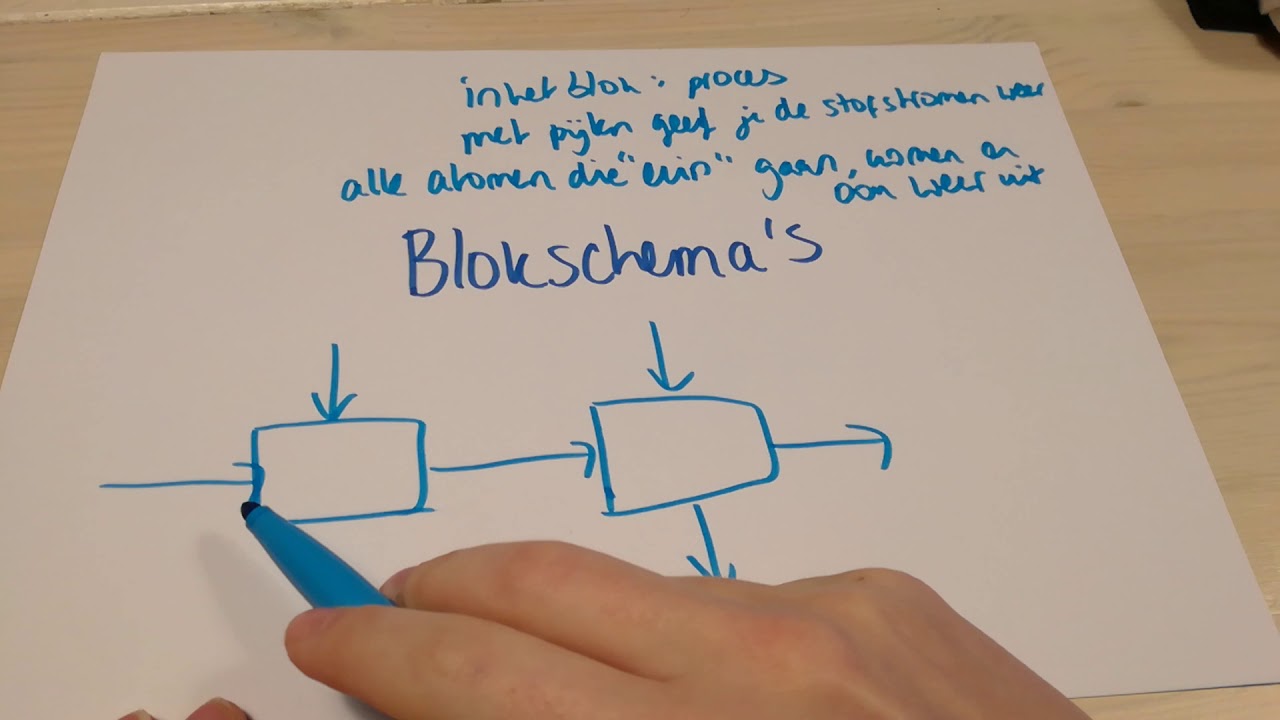 in het blok : proces
met pijlen geef je de stofstromen weer
alle atomen die "erin" gaan, komen er
ook weer uit
Blokschema's